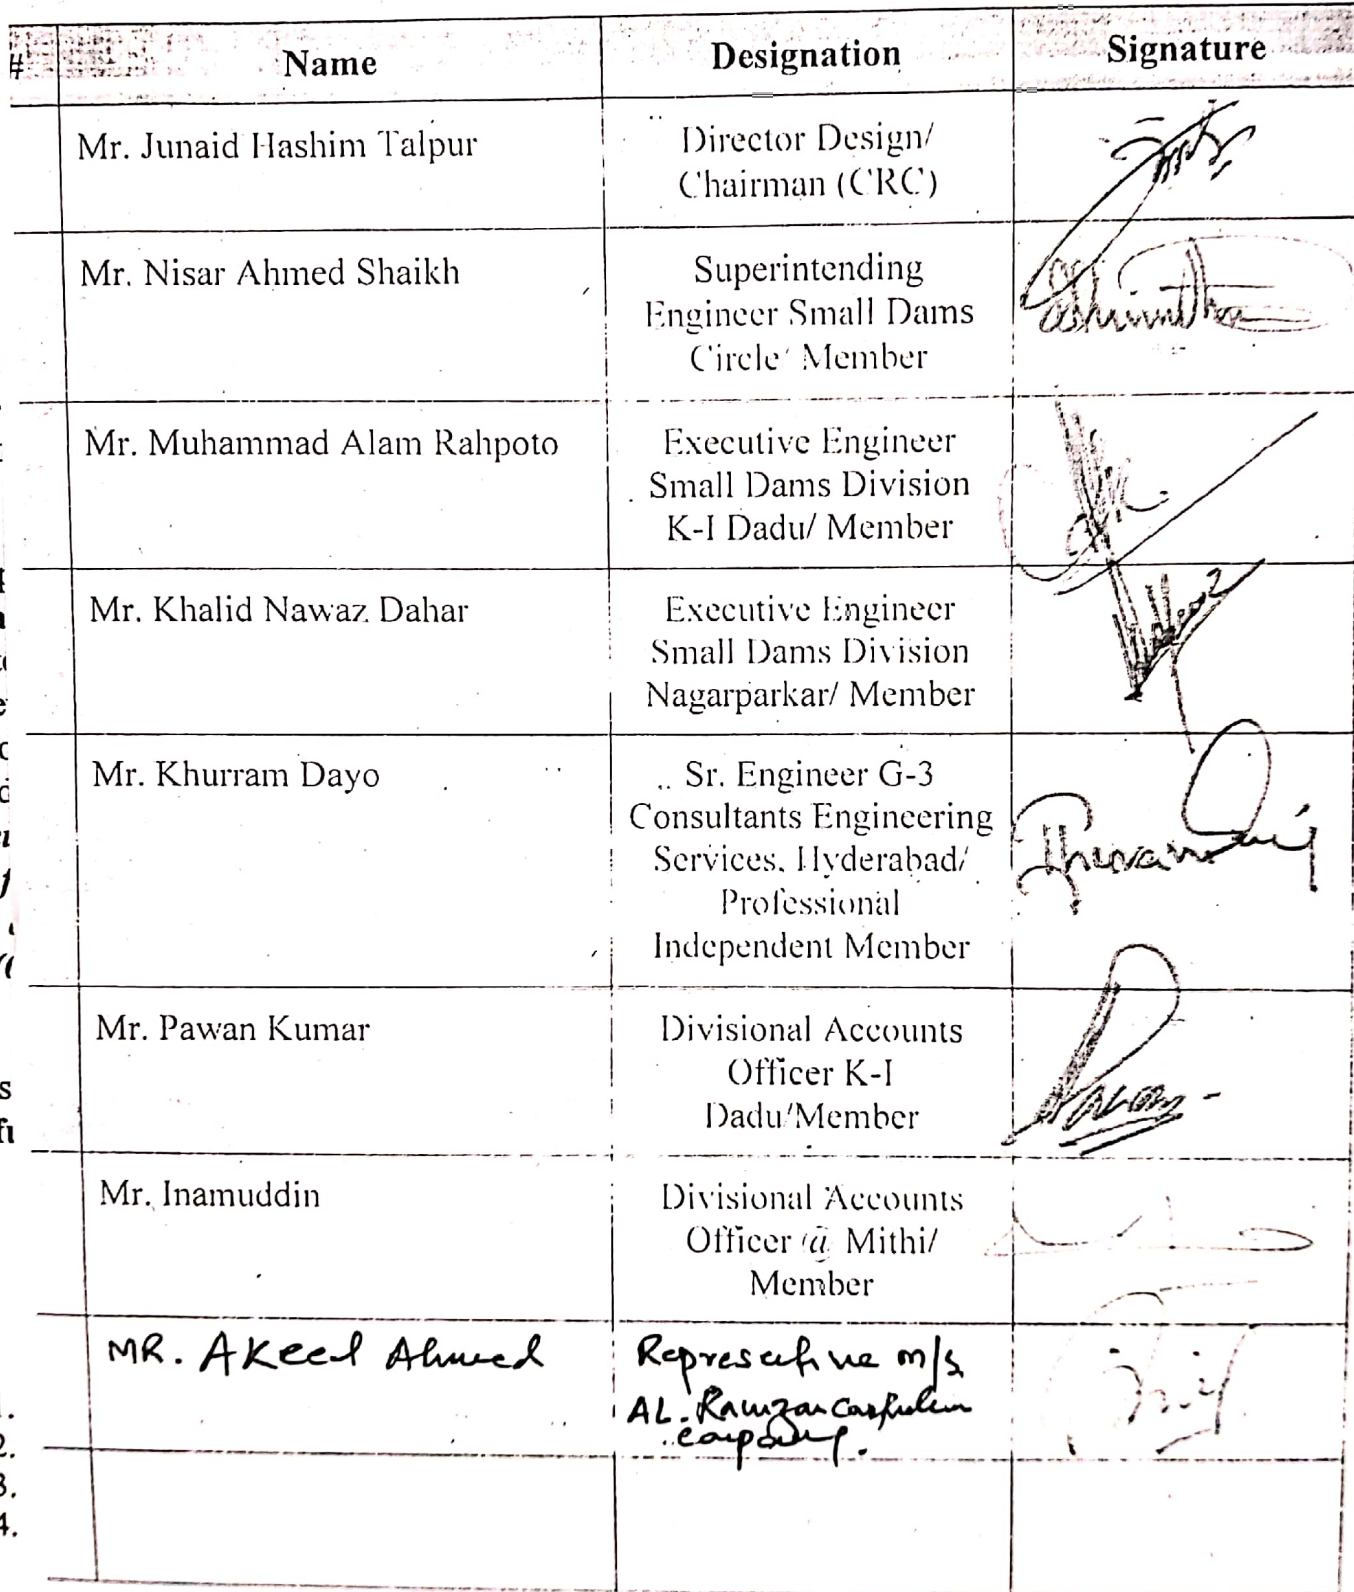 # Name Designation Signature
Mr. Junaid Hashim Talpur
Director Design/
Chairman (CRC)
Mr. Nisar Ahmed Shaikh
Superintending
Engineer Small Dams
Circle/ Member
Mr. Muhammad Alam Rahpoto
Executive Engineer
Small Dams Division
K-I Dadu/ Member
Mr. Khalid Nawaz Dahar
Executive Engineer
Small Dams Division
Nagarparkar/ Member
Mr. Khurram Dayo
Sr. Engineer G-3
Consultants Engineering
Services, Hyderabad/
Professional
Independent Member
Mr. Pawan Kumar
Divisional Accounts
Officer K-I
Dadu/Member
Mr. Inamuddin
Divisional Accounts
Officer @ Mithi/
Member
MR. AKeel Ahmed
Represetive m/s
AL. Ramzan
company.
2.
3.
4.